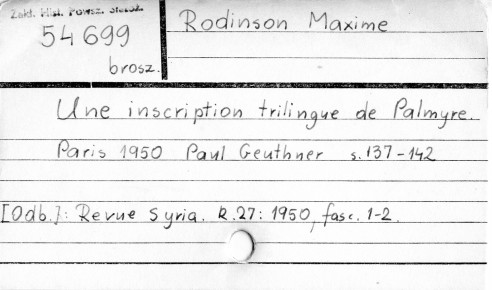 Zakł. Hist. Powsz. Staroż.
54 699
brosz.
Rodinson Maxime
Une inscription trilingue de Palmyre.
Paris 1950 Paul Geuthner s. 137-142
[Odb.]: Revue Syria. R. 27: 1950, fasc. 1-2.